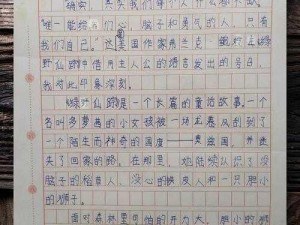 确实,其实我们每个人什么都不缺。
"唯一能给你们心、脑子和勇气的人,只有
我们自己。"这美国作家弗兰克·鲍姆在《绿
野仙踪》借用主人公的语言发出的告白,
我对此印象深刻。
《绿野仙踪》是一个长篇的童话故事。一个
名叫多萝茜的小女孩被一场龙卷风刮到了
一个陌生而神奇的国度——奥兹国,并迷
失了回家的路。在那里,她陆续认识了没
脑子的稻草人、没心的铁皮人和一只胆小
的狮子。
面对森林里可怕的开力大,胆小的狮